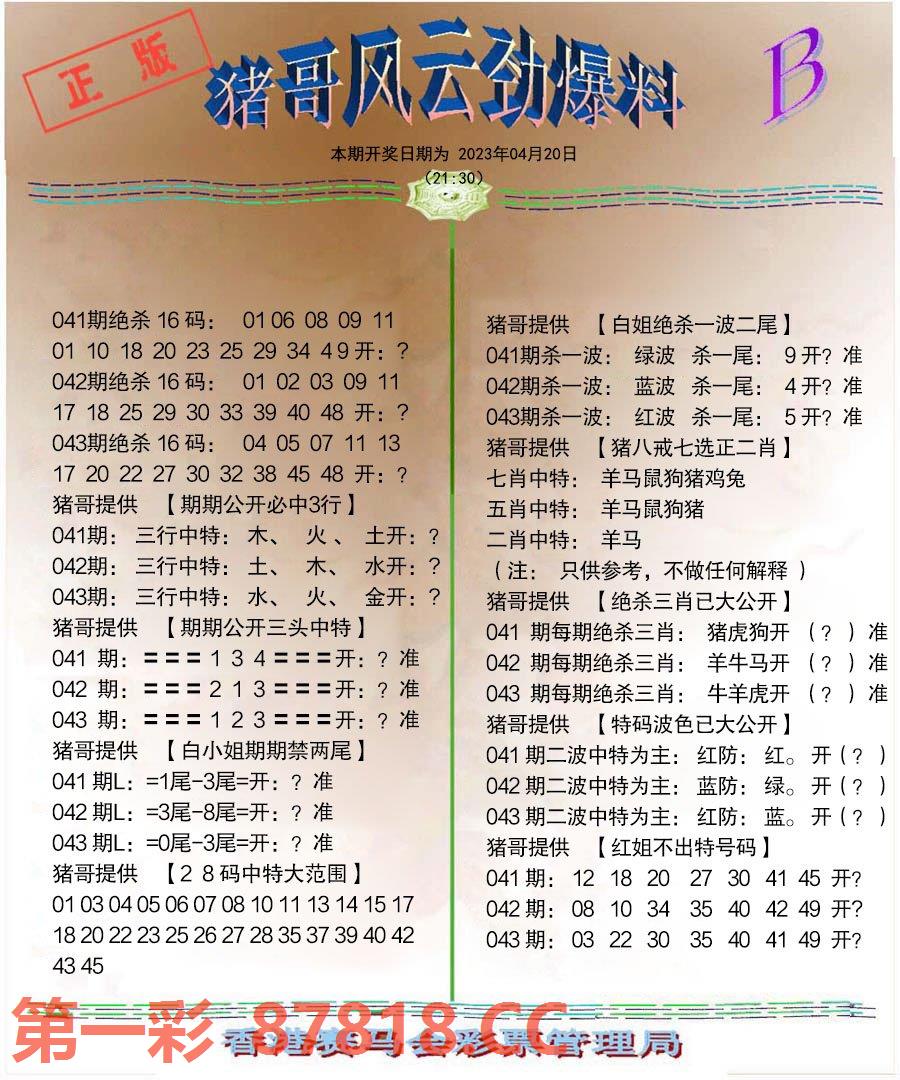 正版
猪哥风云劲爆料
B
本期开奖日期为 2023年04月20日
（21:30）
041期绝杀 16 码： 01 06 08 09 11
01 10 18 20 23 25 29 34 49 开：？
042期绝杀 16 码： 01 02 03 09 11
17 18 25 29 30 33 39 40 48 开：？
043期绝杀 16 码： 04 05 07 11 13
17 20 22 27 30 32 38 45 48 开：？
猪哥提供 【期期公开必中3行】
041期： 三行中特： 木、 火 、 土开：？
042期： 三行中特： 土、 木、 水开：？
043期： 三行中特： 水、 火、 金开：？
猪哥提供 【期期公开三头中特】
041 期：〓〓〓 1 3 4 〓〓〓开：？准
042 期：〓〓〓 2 1 3 〓〓〓开：？准
043 期：〓〓〓 1 2 3 〓〓〓开：？准
猪哥提供 【白小姐期期禁两尾】
041 期L：=1尾-3尾=开：？准
042 期L：=3尾-8尾=开：？准
043 期L：=0尾-3尾=开：？准
猪哥提供 【２８码中特大范围】
01 03 04 05 06 07 08 10 11 13 14 15 17
18 20 22 23 25 26 27 28 35 37 39 40 42
43 45
猪哥提供 【白姐绝杀一波二尾】
041期杀一波： 绿波 杀一尾： 9 开？准
042期杀一波： 蓝波 杀一尾： 4 开？准
043期杀一波： 红波 杀一尾： 5 开？准
猪哥提供 【猪八戒七选正二肖】
七肖中特： 羊马鼠狗猪鸡兔
五肖中特： 羊马鼠狗猪
二肖中特： 羊马
（注： 只供参考，不做任何解释 ）
猪哥提供 【绝杀三肖已大公开】
041 期每期绝杀三肖： 猪虎狗开 （？）准
042 期每期绝杀三肖： 羊牛马开 （？）准
043 期每期绝杀三肖： 牛羊虎开 （？）准
猪哥提供 【特码波色已大公开】
041 期二波中特为主： 红防： 红。 开（？）
042 期二波中特为主： 蓝防： 绿。 开（？）
043 期二波中特为主： 红防： 蓝。 开（？）
猪哥提供 【红姐不出特号码】
041 期： 12 18 20 27 30 41 45 开？
042 期： 08 10 34 35 40 42 49 开？
043 期： 03 22 30 35 40 41 49 开？
第一彩 87818.CC
香港赛马会彩票管理局